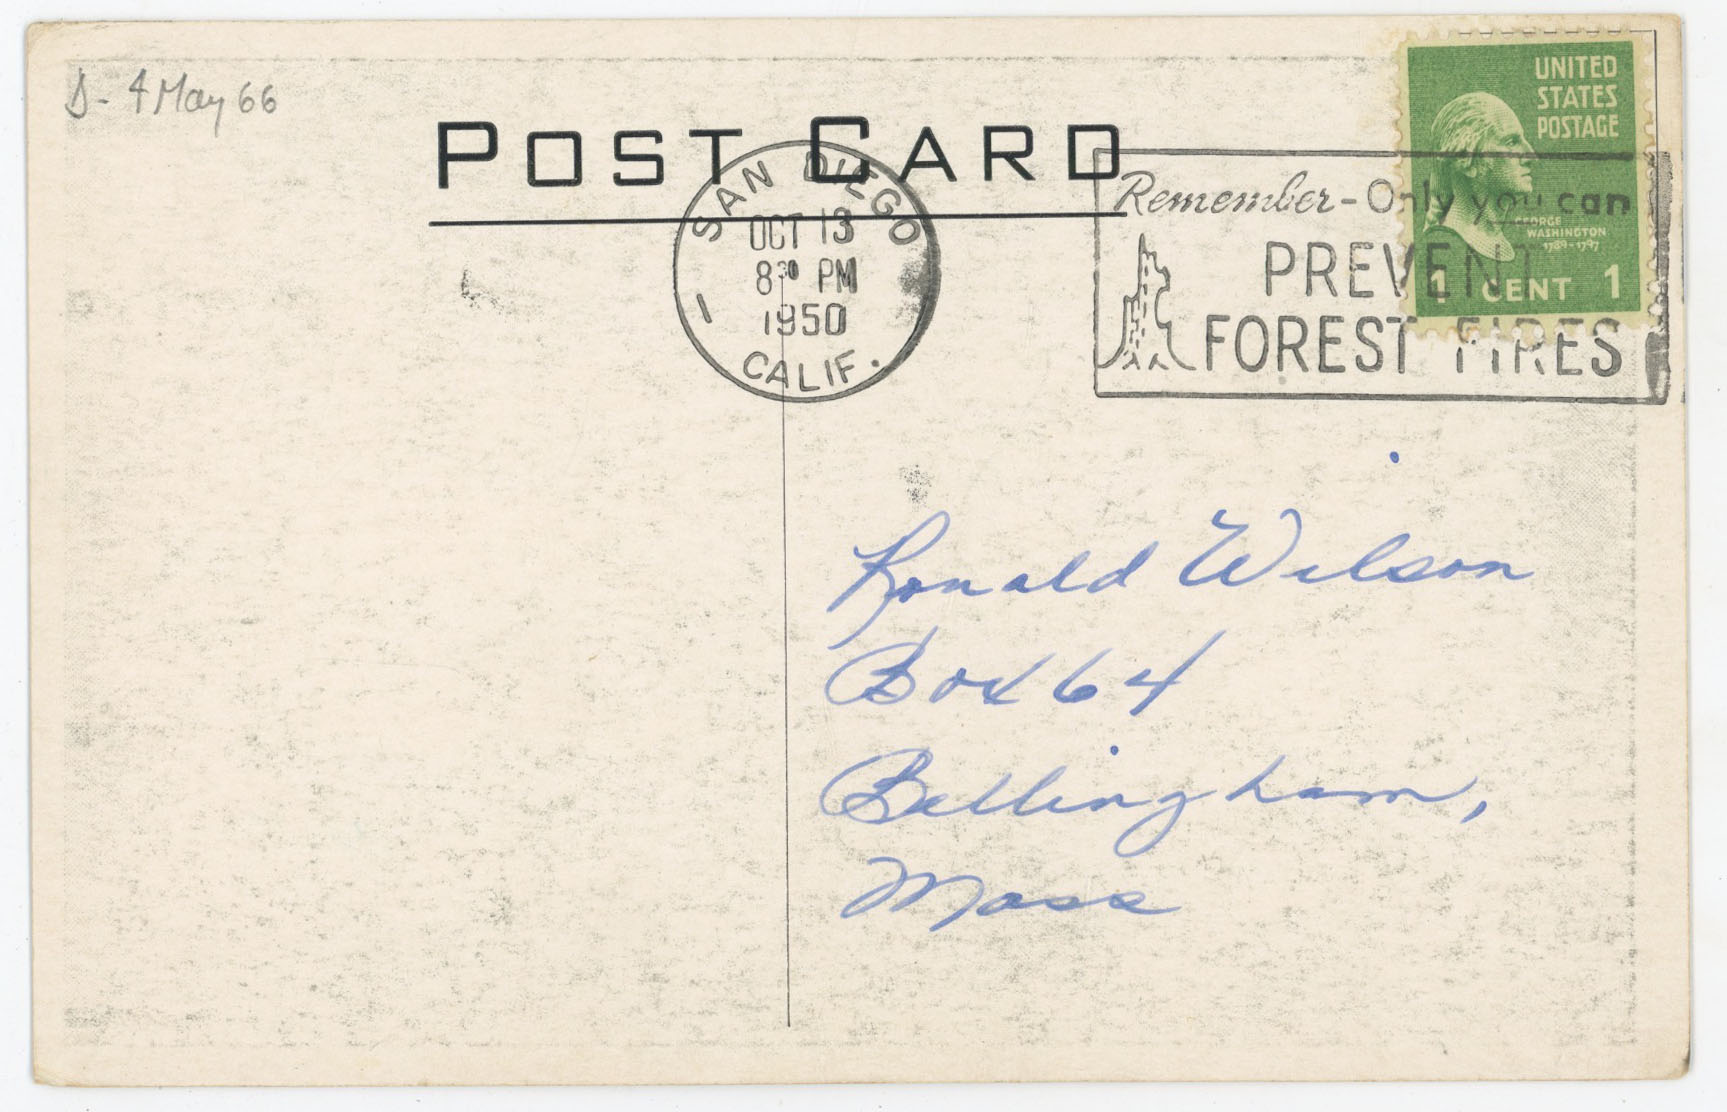 D- 4 May 66
POST CARD
SAN DIEGO
OCT 13
8 30 PM
1950
CALIF.
Remember - Only you can
PREVENT
FOREST FIRES
UNITED
STATES
POSTAGE
GEORGE
WASHINGTON
1789-1797
1 CENT 1
Ronald Wilson
Box 64
Bellingham,
Mass